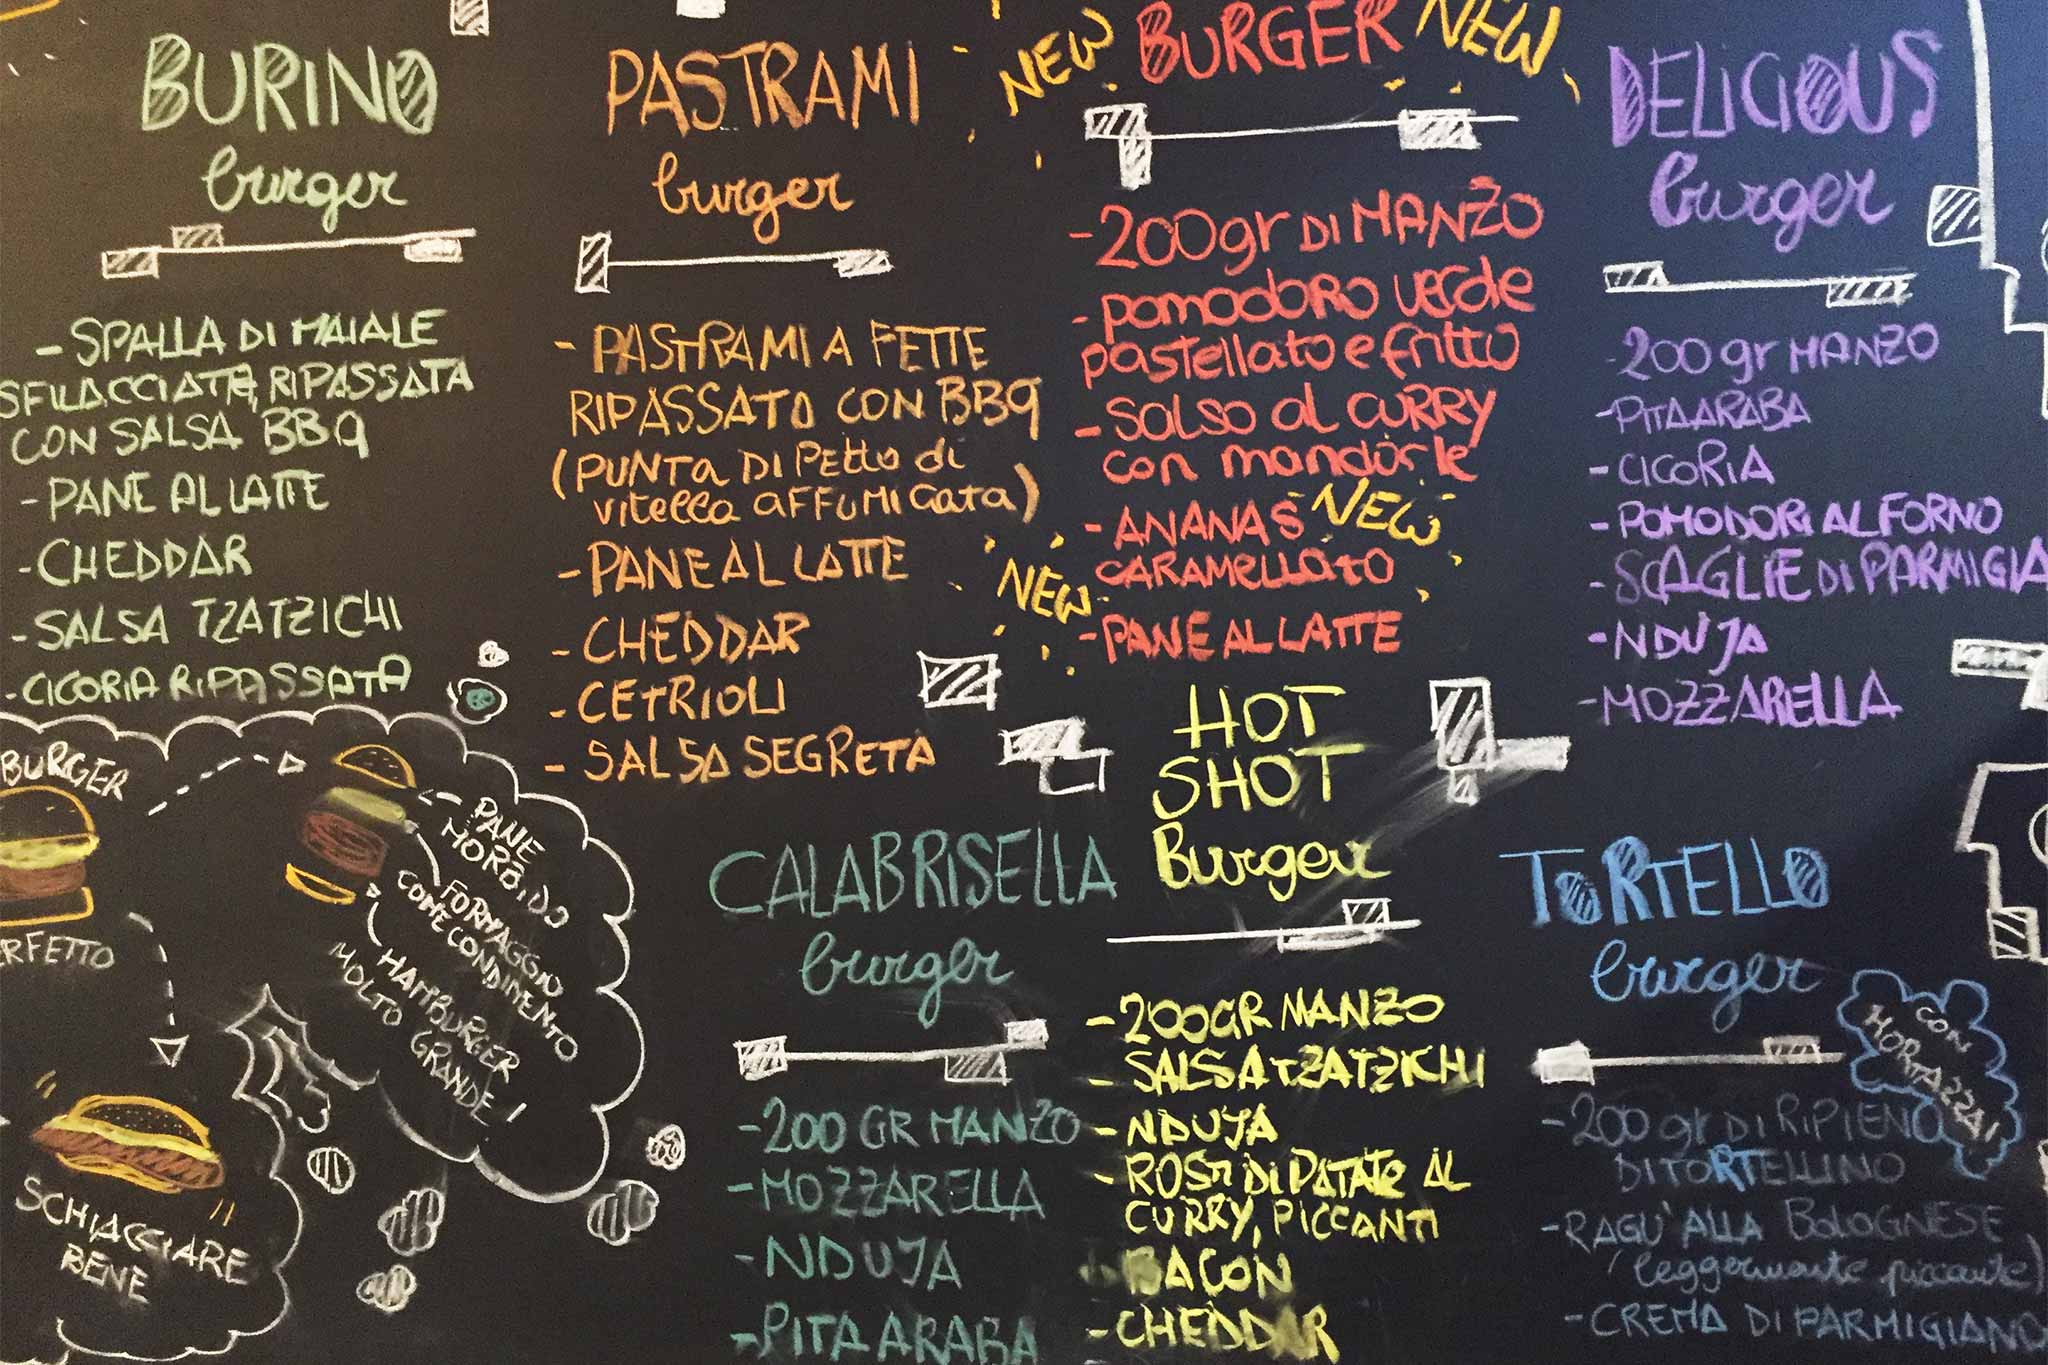 BURINO
burger
- SPALLA DI MAIALE
SFILACCIATA, RIPASSATA
CON SALSA BBQ
- PANE AL LATTE
- CHEDDAR
- SALSA TZATZICHI
- CICORIA RIPASSATA
PASTRAMI
burger
- PASTRAMI A FETTE
RIPASSATO CON BBQ
(PUNTA DI PEttO di
vitella AFFUMICATA)
- PANE AL LATTE
- CHEDDAR
- CETRIOLI
- SALSA SEGRETA
NEW
BURGER
NEW
- 200gr DI MANZO
- pomodoro verde
pastellato e fritto
- Salsa al CURRY
con mandorle
- ANANAS NEW
NEW CARAMELLATO
- PANE AL LATTE
DELICIOUS
burger
- 200 gr MANZO
- PITA ARABA
- CICORIA
- POMODORI AL FORNO
- SCAGLIE DI PARMIGIA
- NDUJA
- MOZZARELLA
BURGER
RFETTO
PANE
MORBIDO
FORMAGGIO
COME CONDIMENTO
HAMBURGER
MOLTO GRANDE!
SCHIACCIARE
BENE
CALABRISELLA
burger
- 200 GR MANZO
- MOZZARELLA
- NDUJA
- PITA ARABA
HOT
SHOT
Burger
- 200GR MANZO
- SALSA TZATZICHI
- NDUJA
- ROSTI DI PATATE AL
CURRY, PICCANTI
- BACON
- CHEDDAR
TORTELLO
burger
CON
MORTAZZA!
- 200 gr DI RIPIENO
DI TORTELLINO
- RAGU' ALLA BOLOGNESE
(leggermente piccante)
- CREMA DI PARMIGIANO